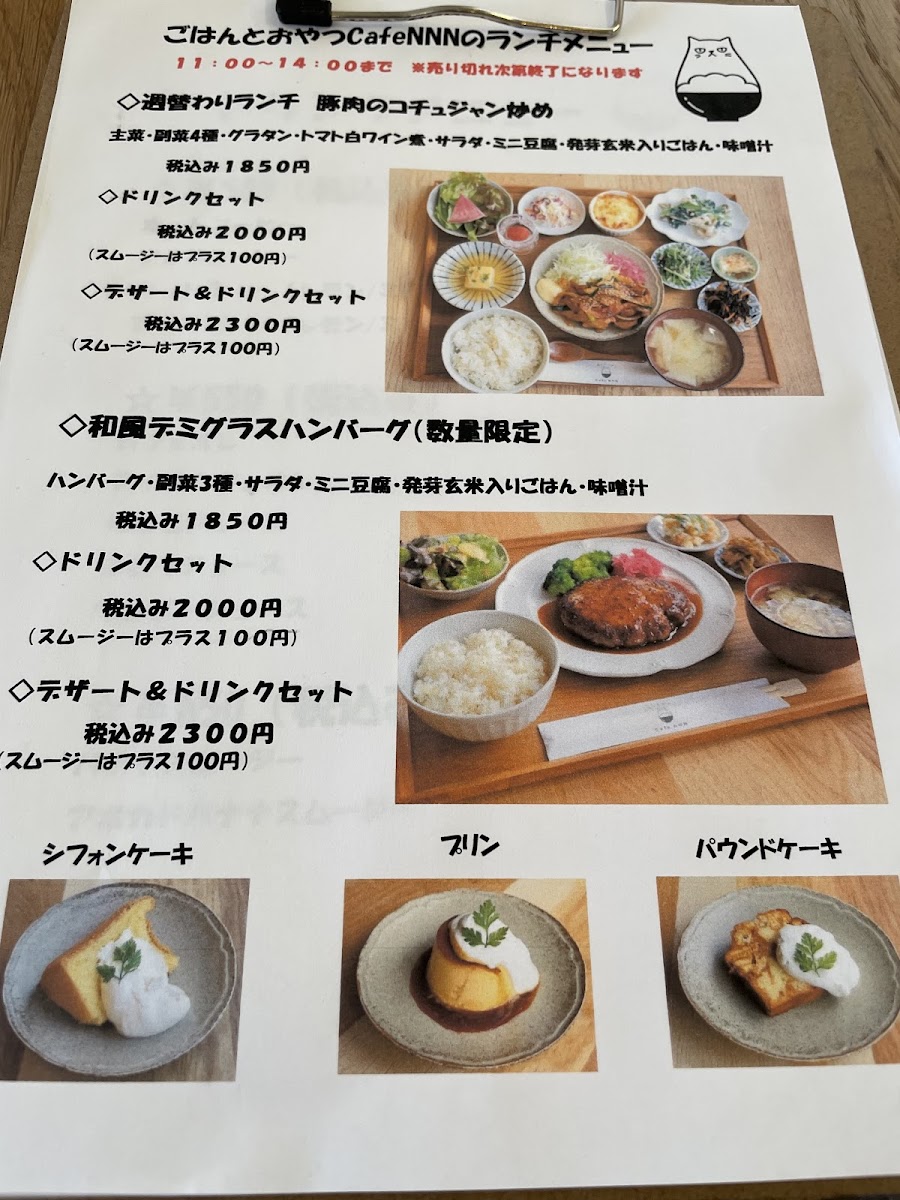 ごはんとおやつCafeNNNのランチメニュー
11:00～14:00まで ※売り切れ次第終了になります
◇週替わりランチ 豚肉のコチュジャン炒め
主菜・副菜4種・グラタン・トマト白ワイン煮・サラダ・ミニ豆腐・発芽玄米入りごはん・味噌汁
税込み1850円
◇ドリンクセット
税込み2000円
(スムージーはプラス100円)
◇デザート＆ドリンクセット
税込み2300円
(スムージーはプラス100円)
◇和風デミグラスハンバーグ(数量限定)
ハンバーグ・副菜3種・サラダ・ミニ豆腐・発芽玄米入りごはん・味噌汁
税込み1850円
◇ドリンクセット
税込み2000円
(スムージーはプラス100円)
◇デザート＆ドリンクセット
税込み2300円
(スムージーはプラス100円)
シフォンケーキ
プリン
パウンドケーキ